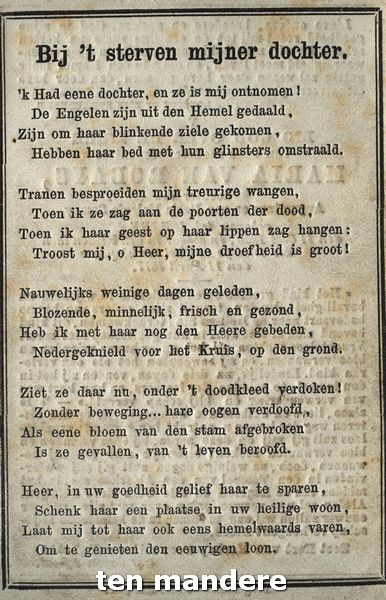 Bij 't sterven mijner dochter.
'k Had eene dochter, en ze is mij ontnomen!
De Engelen zijn uit den Hemel gedaald,
Zijn om haar blinkende ziele gekomen,
Hebben haar bed met hun glinsters omstraald.
Tranen besproeiden mijn treurige wangen,
Toen ik ze zag aan de poorten der dood,
Toen ik haar geest op haar lippen zag hangen:
Troost mij, o Heer, mijne droefheid is groot!
Nauwelijks weinige dagen geleden,
Blozende, minnelijk, frisch en gezond,
Heb ik met haar nog den Heere gebeden,
Nedergeknield voor het Kruis, op den grond.
Ziet ze daar nu, onder 't doodkleed verdoken!
Zonder beweging... hare oogen verdoofd,
Als eene bloem van den stam afgebroken
Is ze gevallen, van 't leven beroofd.
Heer, in uw goedheid gelief haar te sparen,
Schenk haar een plaatse in uw heilige woon,
Laat mij tot haar ook eens hemelwaards varen,
Om te genieten den eeuwigen loon.
ten mandere